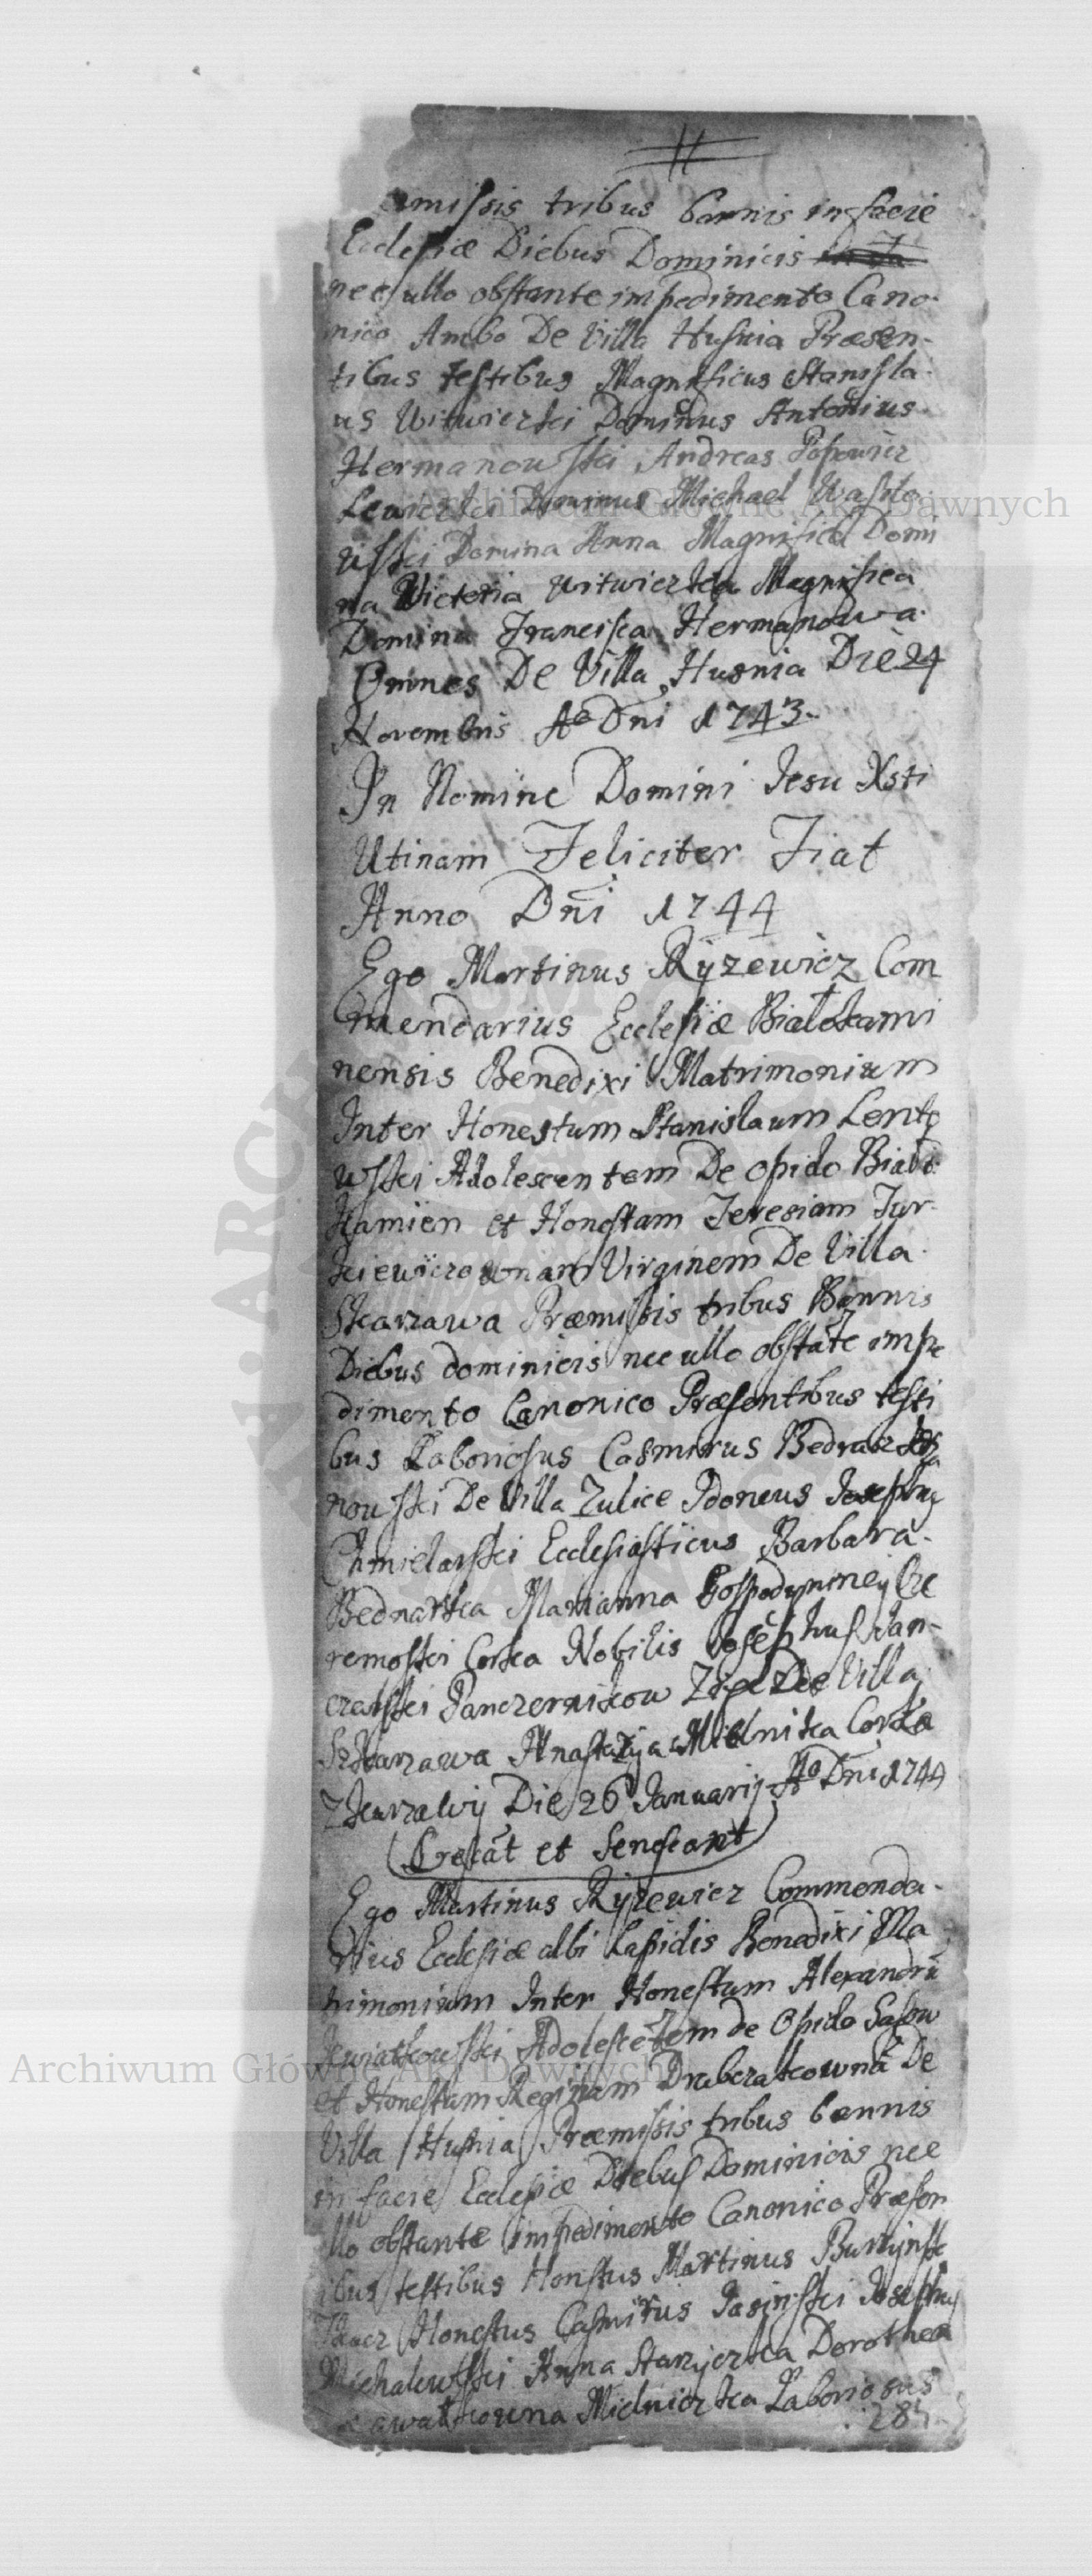 emissis tribus bannis in facie
Ecclesiæ Diebus Dominicis
nec ullo obstante impedimento Cano-
nico Ambo De Villa Husnia Præsen-
tibus testibus Magnificus Stanisla-
us Witwicrki Dominus Antonius
Hermanowski Andreas Popowicz
Dominus Michael Wasilo
wski Domina Anna Magnifica Domi
na Victoria Witwiczka Magnifica
Domina Francisca Hermanowa
Omnes De Villa Husnia Die 24
Novembris Ao Dni 1743
In Nomine Domini Jesu Xsti
Utinam Feliciter Fiat
Anno Dni 1744
Ego Martinus Ryzewicz Com
mendarius Ecclesiæ Białokami
nensis Benedixi Matrimonium
Inter Honestum Stanislaum Lento
wski Adolescentem De Opido Biało
kamien et Honestam Teresiam Jur-
kiewiczownam Virginem De Villa
Skarzawa Præmissis tribus Bannis
Diebus dominicis nec ullo obstāte impe
dimento Canonico Præsentibus testi
bus Laboriosus Casmirus Bednarz
nowski De Villa Zulice Idoneus Josephus
Chmielarski Ecclesiasticus Barbara
Bednarka Marianna Gospodyniney Ce
remoski Corka Nobilis Josephus Jan-
czarski Pancernikow De Villa
Szkarzawa Anastazyia Mielnika Corka
Zkurzawy Die 26 Januarij Ao Dni 1744
Crescāt et Senescant
Ego Martinus Ryzewicz Commenda-
rius Ecclesiæ albi Lapidis Benedixi Ma
trimonium Inter Honestum Alexandrū
Kwiatkowski Adolescētem de Opido Sasow
et Honestam Reginam Drabczakownā De
Villa Husnia Præmissis tribus bannis
in facie Ecclesiæ Diebus Dominicis nec
ullo obstante impedimento Canonico Præsen
tibus testibus Honstus Martinus Burzynsk
Tkacz Honestus Casmirus Jasinski Josephus
Michalewski Anna Starzyczka Dorothea
Mielniczka Laboriosus
285
Archiwum Główne Akt Dawnych
Archiwum Główne Akt Dawnych